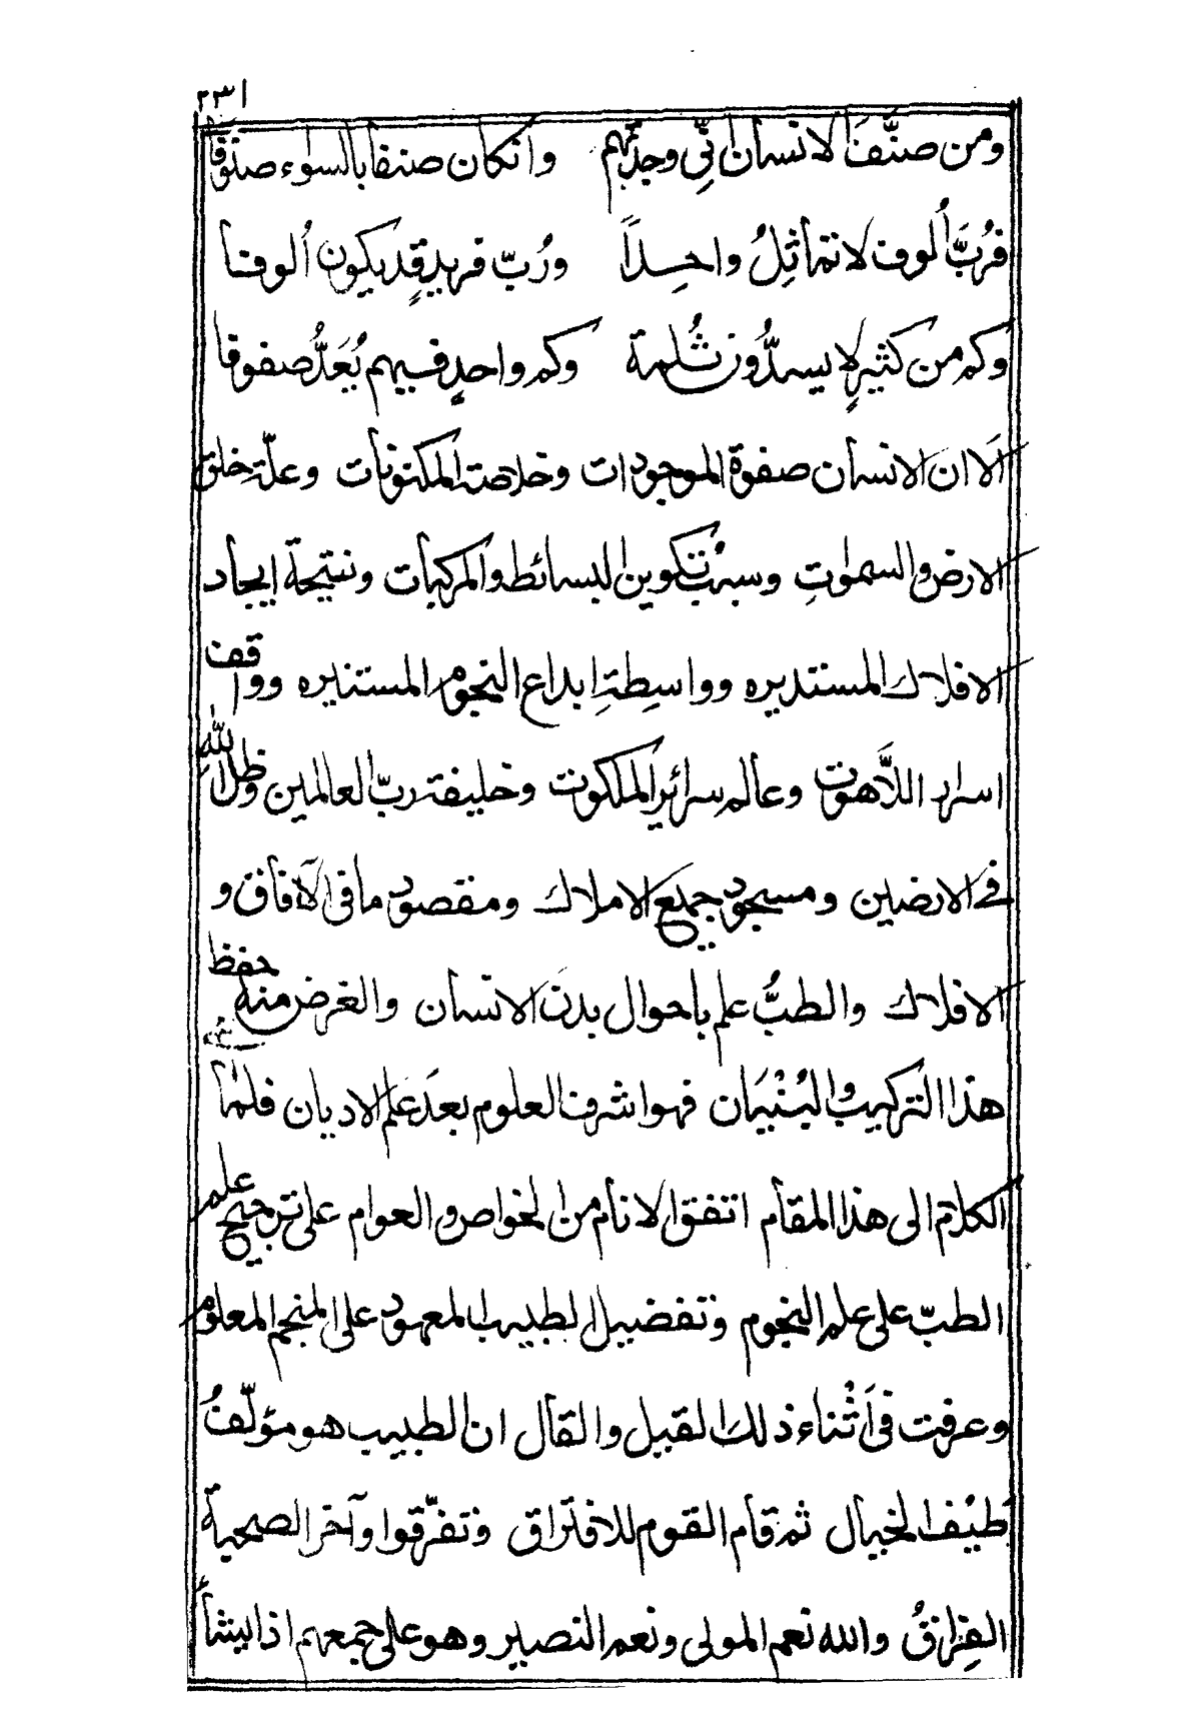 ٢٣١
ومن صنّف الانسان انّى وجدتهم وانكان صنفا بالسواء صنوفا
فرُبَّ اُلوف لا تماثِلُ واحِداً ورُبّ فريدٍ قد يكون اُلوفا
وكم من كثيرٍ لا يسدُّون ثُلمة وكم واحدٍ فيهم يُعَدُّ صفوفا
اَلا ان الانسان صفوة الموجودات وخلاصة المكنونات وعلّة خلق
الارض والسموٰتِ وسبب تكوين البسائط والمركبات ونتيجة ايجاد
الافلاك المستديره وواسِطةِ ابداع النجوم المستنيره وواقف
اسرار اللاَّهوت وعالم سرائر الملكوت وخليفة ربّ العالمين وظلّ اللهِ
في الارضين ومسجود جميع الاملاك ومقصود ما في الآفاق و
الافلاك والطبُّ علم باحوال بدن الانسان والغرض منه حفظ
هذا التركيب والبُنْيَان فهو اشرف العلوم بعدَ علم الاديان فلما
الكلام الى هذا المقام اتفق الانام من الخواص والعوام على ترجيح علم
الطبّ على علم النجوم وتفضيل الطبيب المعهود على المنجم المعلوم
وعرفت فى اَثْناء ذلك القيل والقال ان الطبيب هو مؤلّفُ
طَيْف الخيال ثم قام القوم للافتراق وتفرّقوا وآخر الصحبة
الفِراقُ والله نعم المولى ونعم النصير وهو على جمعهم اذا يشاءُ